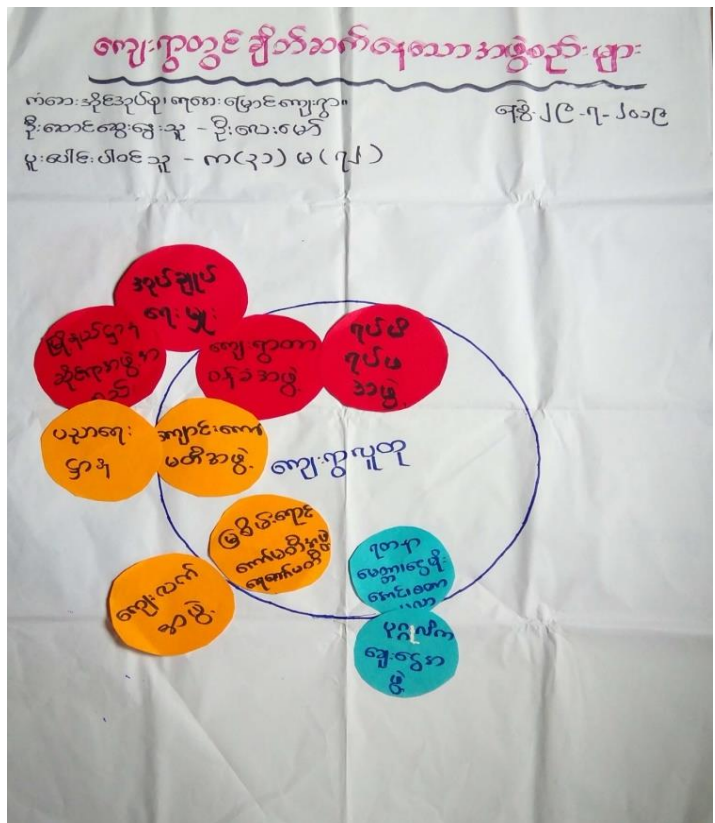 ကျေးရွာတွင်ချိတ်ဆက်နေသောအဖွဲ့စည်းများ
ကံစေးအိုင်အုပ်စု၊ ရေစေးမြောင်ကျေးရွာ။
နေ့စွဲ-၂၉-၇-၂၀၁၉
ဦးဆောင်ဆွေးနွေးသူ - ဦးလေးမော်
ပူးပေါင်းပါဝင်သူ - က(၃၁) မ(၇၂)
အုပ်ချုပ်
ရေးမှူး
မြို့နယ်ဌာန
ဆိုင်ရာအဖွဲ့အ
စည်း
ကျေးရွာကာ
ကွယ်ရေးအဖွဲ့
ရပ်မိ
ရပ်ဖ
အဖွဲ့
ပညာရေး
ဌာန
ကျောင်းကော်
မတီအဖွဲ့
ကျေးရွာလူထု
မြစိမ်းရောင်
ကော်မတီအဖွဲ့
ရေကော်မတီ
ကျေးလက်
အဖွဲ့
ရတနာ
မေတ္တာငွေစုံ
ပုဂ္ဂလိက
ချေးငွေအ
ဖွဲ့